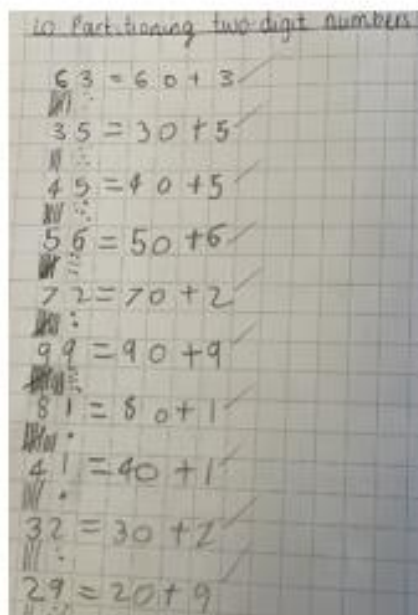 LO Partitioning two-digit numbers
63 = 60 + 3
35 = 30 + 5
45 = 40 + 5
56 = 50 + 6
72 = 70 + 2
99 = 90 + 9
81 = 80 + 1
41 = 40 + 1
32 = 30 + 2
29 = 20 + 9